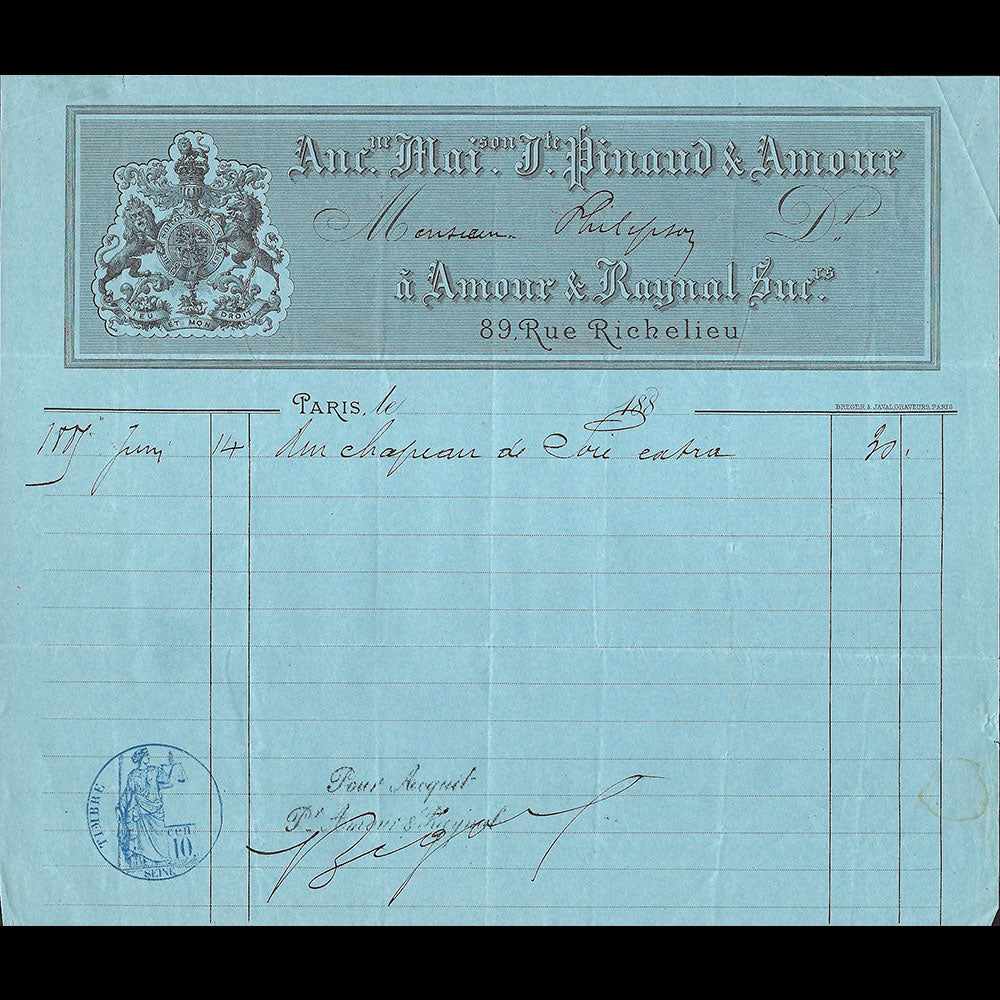 Anc.ne Mai.son J.te Pinaud & Amour
Monsieur Philipson Dt
à Amour & Raynal Suc.rs
89, Rue Richelieu
DIEU ET MON DROIT
PARIS, le 188
BREGER & JAVAL, GRAVEURS, PARIS
Juin 14 Un chapeau de Soie extra
TIMBRE
cen
10
SEINE
Pour Acquit
Pr Amour & Raynal